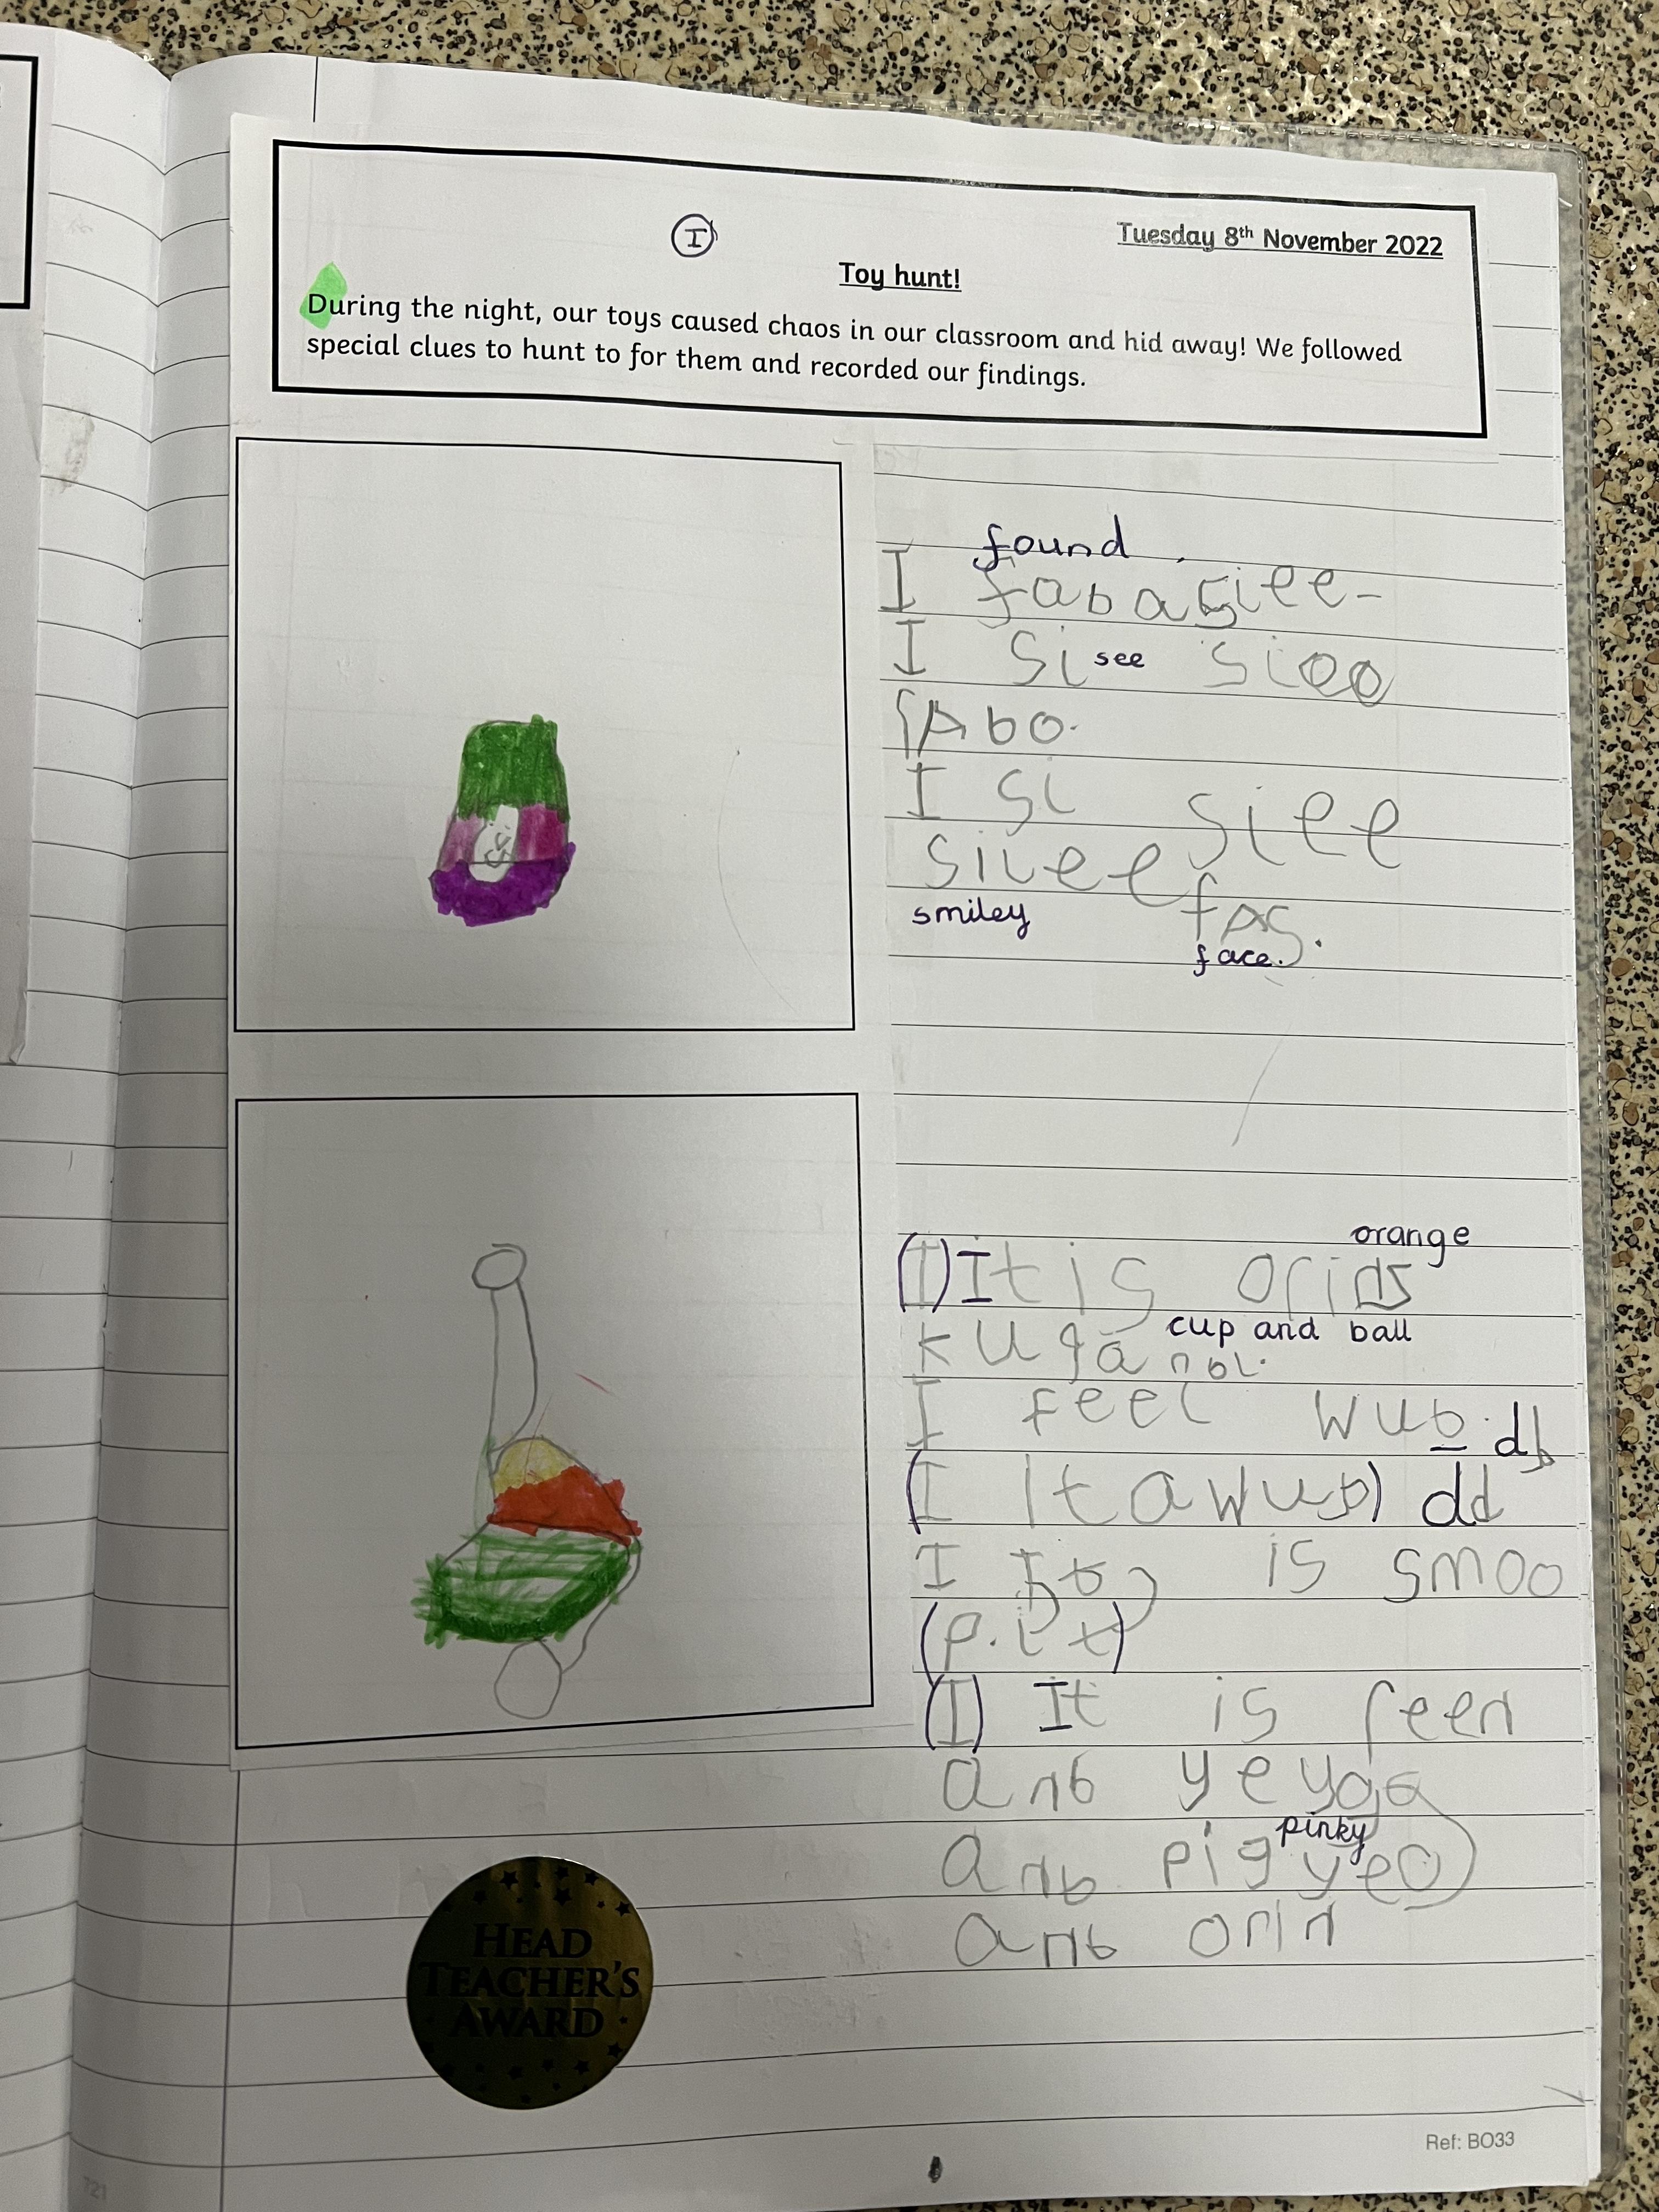 I
Tuesday 8th November 2022
Toy hunt!
During the night, our toys caused chaos in our classroom and hid away! We followed
special clues to hunt to for them and recorded our findings.
found
I faba siee
I si see sieo
fAbo.
I si siee
silee
smiley fas.
face.
orange
(I) It is orins
cup and ball
kugānbl.
I feel wub. db
(I Itawub) dd
I It is smoo
(p.it)
(I) It is reen
anb yeyoa
pinky
anb pig yeo
anb orin
HEAD
TEACHER'S
AWARD
Ref: BO33
721